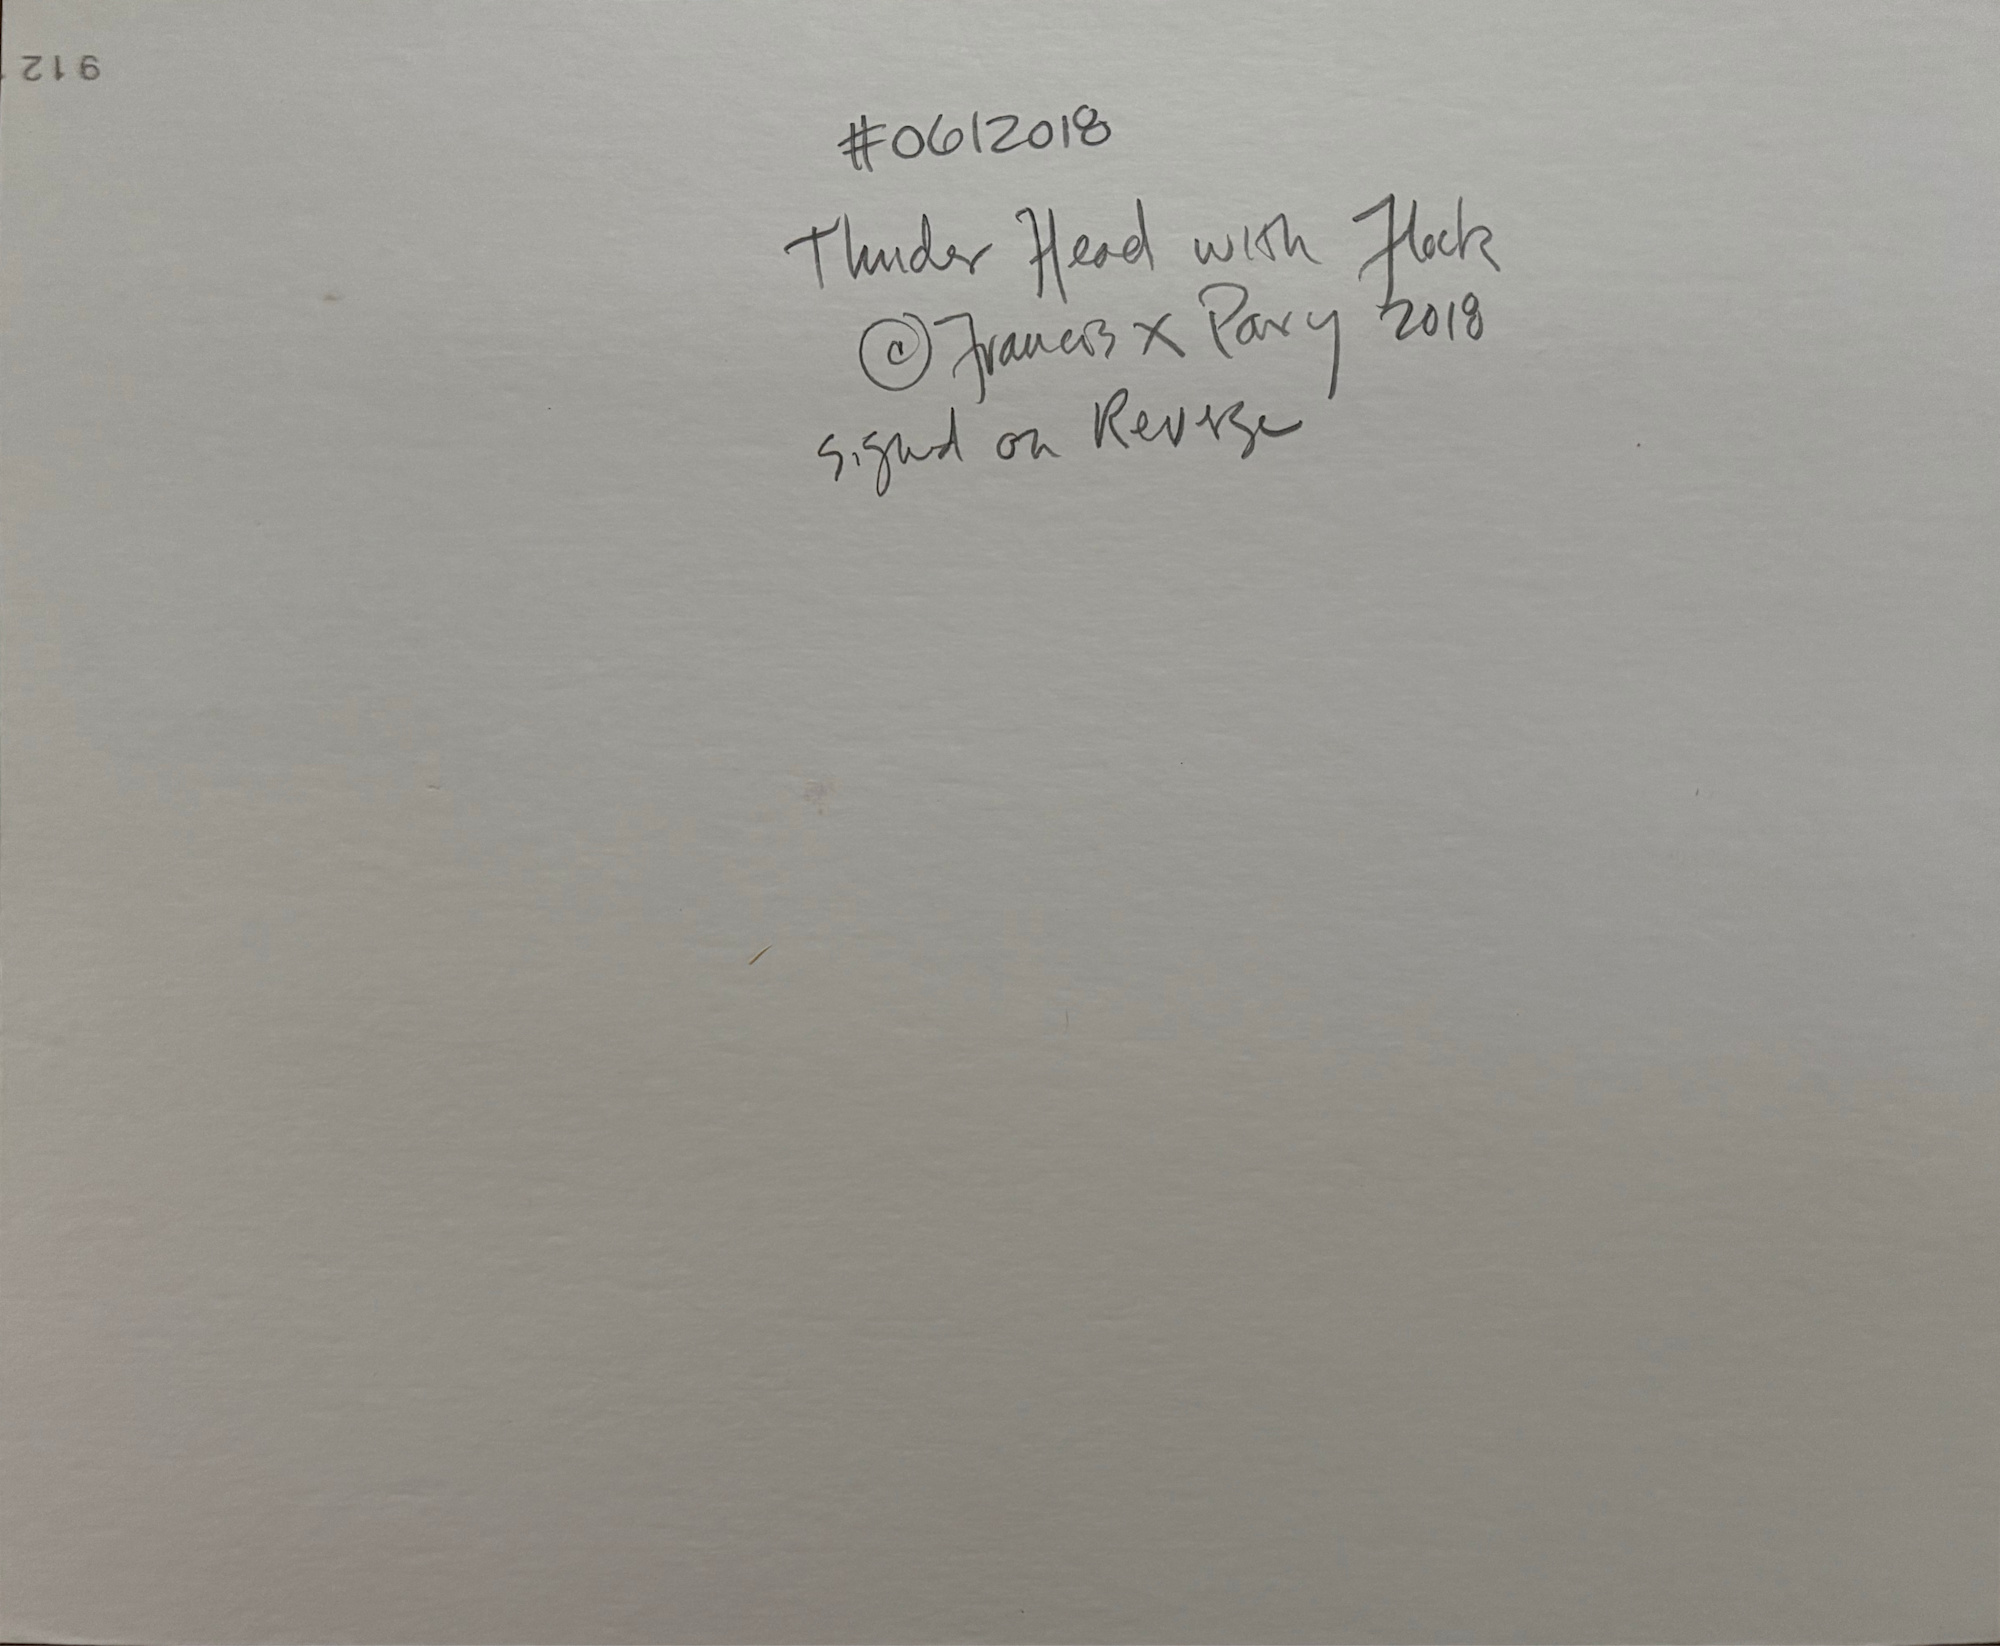 912
#0612018
Thunder Head with Flock
© Francis X Pavy 2018
signed on Reverse